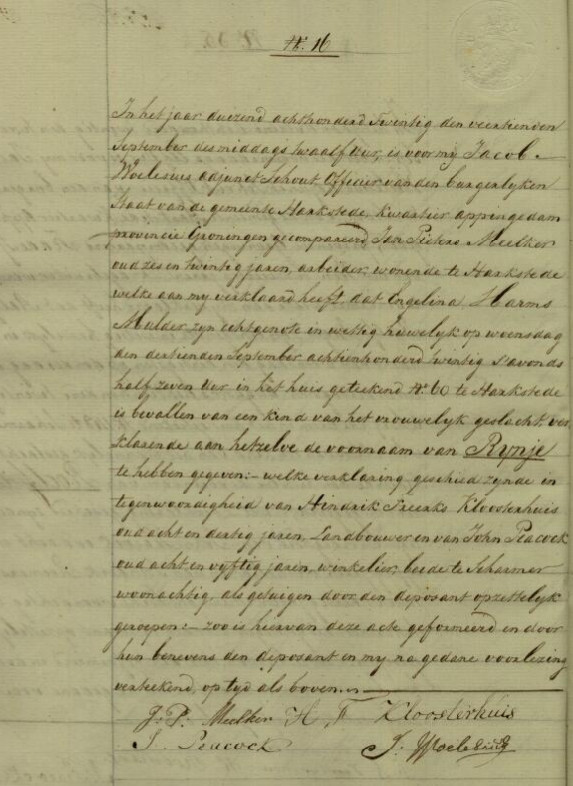 N. 16
In het jaar duizend achthonderd Twentig den veertienden
September des middags twaalf Uur, is voor my Jacob
Woelesius adjunct Schout Officier van den burgerlyken
Staat van de gemeente Harkstede, kwartier appingedam
provincie Groningen gecompareerd Jan Pieters Meelker
oud zes en twintig jaren, arbeider, wonende te Harkstede
welke aan my verklaard heeft, dat Engelina Harms
Mulder zyn echtgenote in wettig huwelyk op woensdag
den dertienden September achtienhonderd twintig s'avonds
half zeven Uur in het huis geteekend N. 60 te Harkstede
is bevallen van een kind van het vrouwelyk geslacht, ver
klarende aan hetzelve de voornaam van Rynje
te hebben gegeven:- welke verklaring geschied zynde in
tegenwoordigheid van Hindrik Freerks Kloosterhuis
oud acht en dertig jaren, Landbouwer en van John Peacock
oud acht en vyftig jaren, winkelier, beide te Scharmer
woonachtig, als getuigen door den deposant opzettelyk
geroepen:- zoo is hiervan deze acte geformeerd en door
hun benevens den deposant en my na gedane voorlezing
verteekend, op tyd als boven.
J. P. Meelker H F Kloosterhuis
J. Peacock J. Woelesius